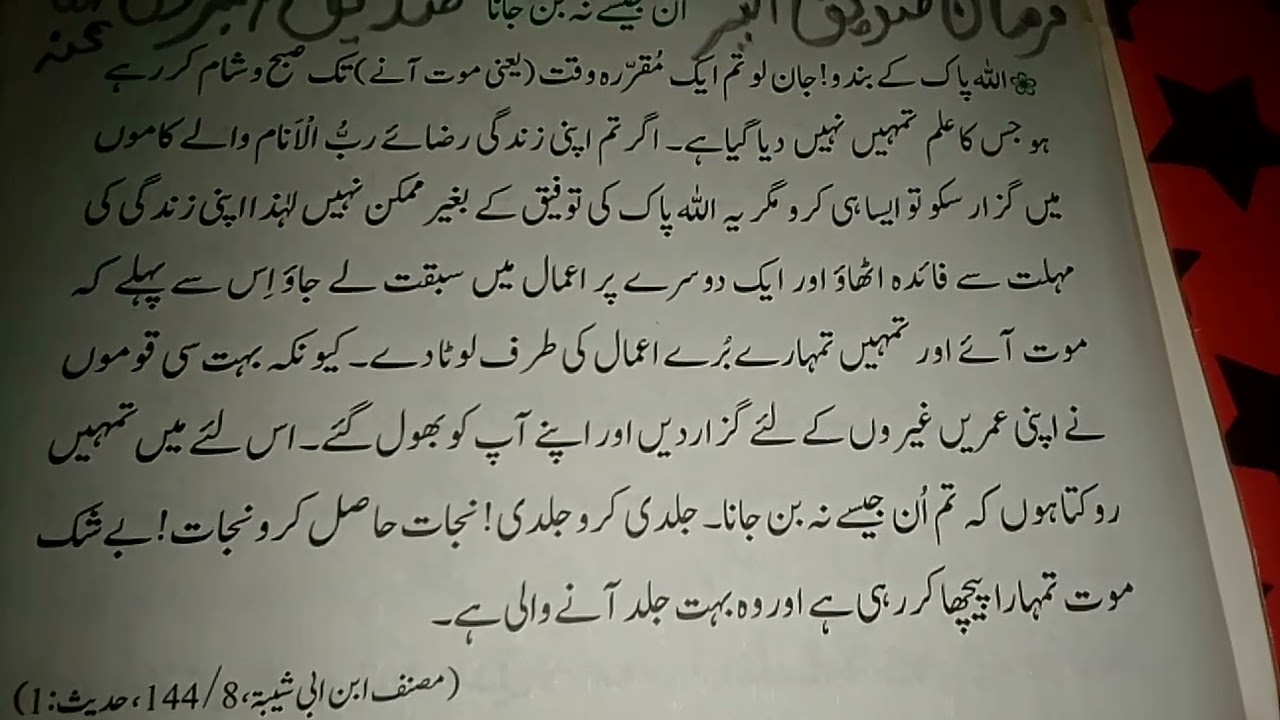 فرمان صدیق اکبر ان جیسے نہ بن جانا صدیق اکبر
عنہ
اللہ پاک کے بندو! جان لو تم ایک مُقرّرہ وقت (یعنی موت آنے) تک صبح و شام کر رہے
ہو جس کا علم تمہیں نہیں دیا گیا ہے۔ اگر تم اپنی زندگی رضائے ربُّ الْاَنام والے کاموں
میں گزار سکو تو ایسا ہی کرو مگر یہ اللہ پاک کی توفیق کے بغیر ممکن نہیں لہٰذا اپنی زندگی کی
مہلت سے فائدہ اٹھاؤ اور ایک دوسرے پر اعمال میں سبقت لے جاؤ اِس سے پہلے کہ
موت آئے اور تمہیں تمہارے بُرے اعمال کی طرف لوٹا دے۔ کیونکہ بہت سی قوموں
نے اپنی عمریں غیروں کے لئے گزار دیں اور اپنے آپ کو بھول گئے۔ اس لئے میں تمہیں
روکتا ہوں کہ تم اُن جیسے نہ بن جانا۔ جلدی کرو جلدی! نجات حاصل کرو نجات! بے شک
موت تمہارا پیچھا کر رہی ہے اور وہ بہت جلد آنے والی ہے۔
(مصنف ابن ابی شیبۃ، 8/144، حدیث:1)